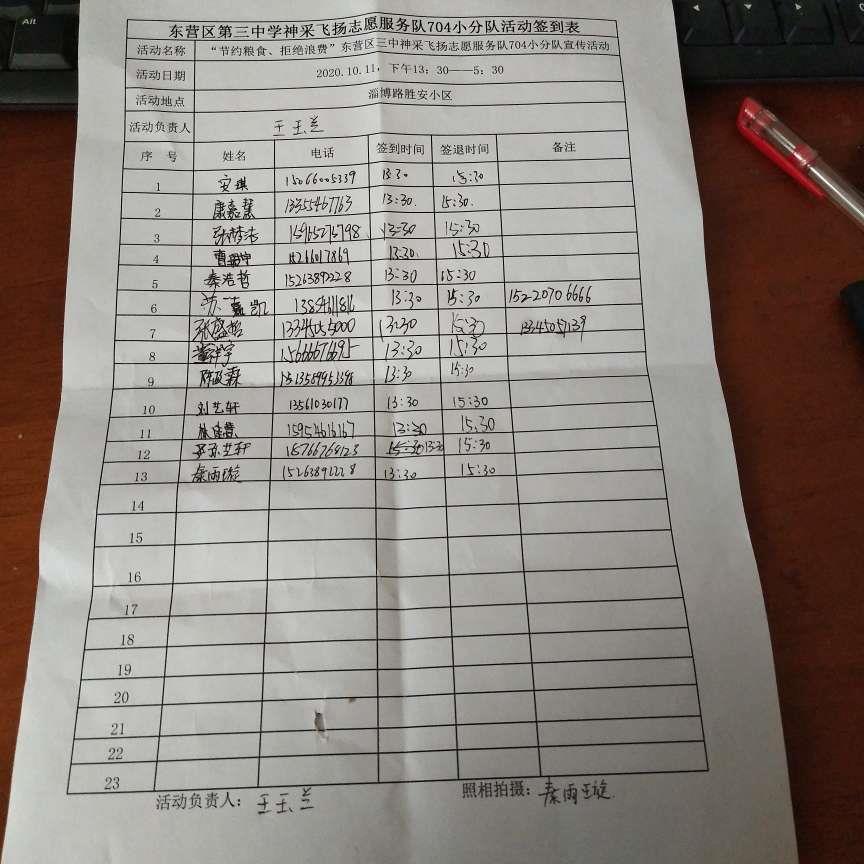 东营区第三中学神采飞扬志愿服务队704小分队活动签到表
活动名称 “节约粮食、拒绝浪费”东营区三中神采飞扬志愿服务队704小分队宣传活动
活动日期 2020.10.11，下午13：30——5：30
活动地点 淄博路胜安小区
活动负责人 王玉兰
序 号 姓名 电话 签到时间 签退时间 备注
1 安琪 15066005339 13:30 15:30
2 康嘉慧 13355467763 13:30. 15:30.
3 张梦洁 15965275798 13:30 15:30
4 15266017869 13:30. 15:30
5 秦浩哲 15263892228 13:30 15:30
6 苏嘉凯 13854611816 13:30 15:30 15220706666
7 张盛哲 13345055000 13:30 15:30
8 15666676695 13:30 15:30
9 陈政霖 13:30 15:30
10 刘艺轩 13561030177 13:30 15:30
11 15954616167 13:30 15:30
12 15766768123 13:30 15:30
13 秦雨璇 15263892228 13:30 15:30
14
15
16
17
18
19
20
21
22
23
活动负责人： 王玉兰 照相拍摄： 秦雨璇